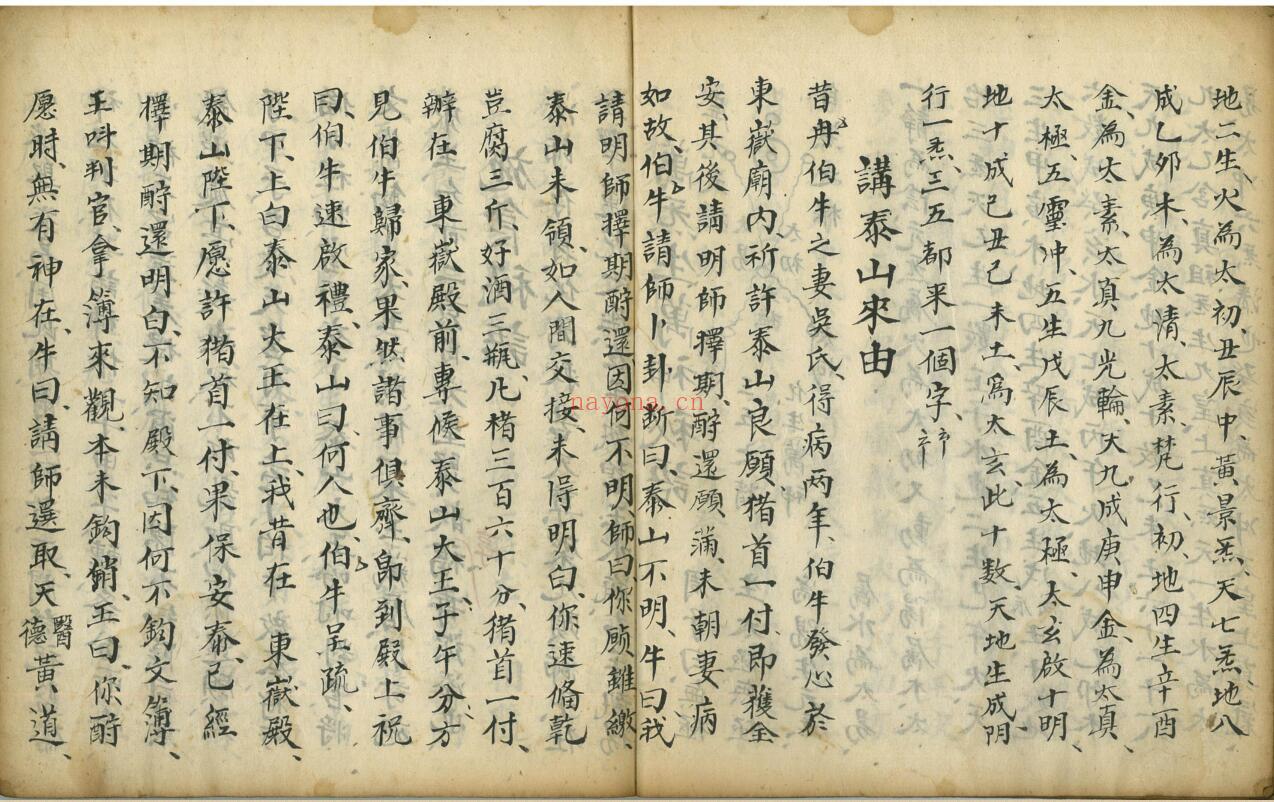 地二生火為太初、丑辰中、黃景炁、天七炁地八
成乙夘木、為太清、太素、梵行、初、地四生辛酉
金、為太素、太真九光輪、天九成庚申金、為太真、
太極、五靈冲、五生戊辰土、為太極、太玄啟十明
地十成己丑己未土、為太玄、此十數、天地生成阴
行一炁、三五都来一個字、
講泰山來由
昔冉伯牛之妻吳氏、得病两年、伯牛發心於
東嶽廟内、祈許泰山良願猪首一付、即獲全
安、其後請明師擇期、酧還願滿、未朝妻病
如故、伯牛請師卜卦、断曰、泰山不明、牛曰、我
請明師擇期酧還、因何不明、師曰、你願雖繳、
泰山未領、如人間交接、未得明白、你速俻乾
豈腐三斤、好酒三瓶、凡楮三百六十分、猪首一付、
辦在東嶽殿前、專候泰山大王、子午分方、
見伯牛歸家、果然諸事俱齊、卽到殿上祝
曰、伯牛速啟禮、泰山曰、何人也、伯牛呈疏、
陛下、上白泰山大王在上、我昔在 東嶽殿、
泰山陛下、愿許猪首一付、果保安泰、已經
擇期酧還明白、不知殿下、因何不鈎文簿、
王呌判官、拿簿來觀、本未鈎銷、王曰、你酧
愿時、無有神在、牛曰、請師選取、天德醫黃道、
nayona.cn